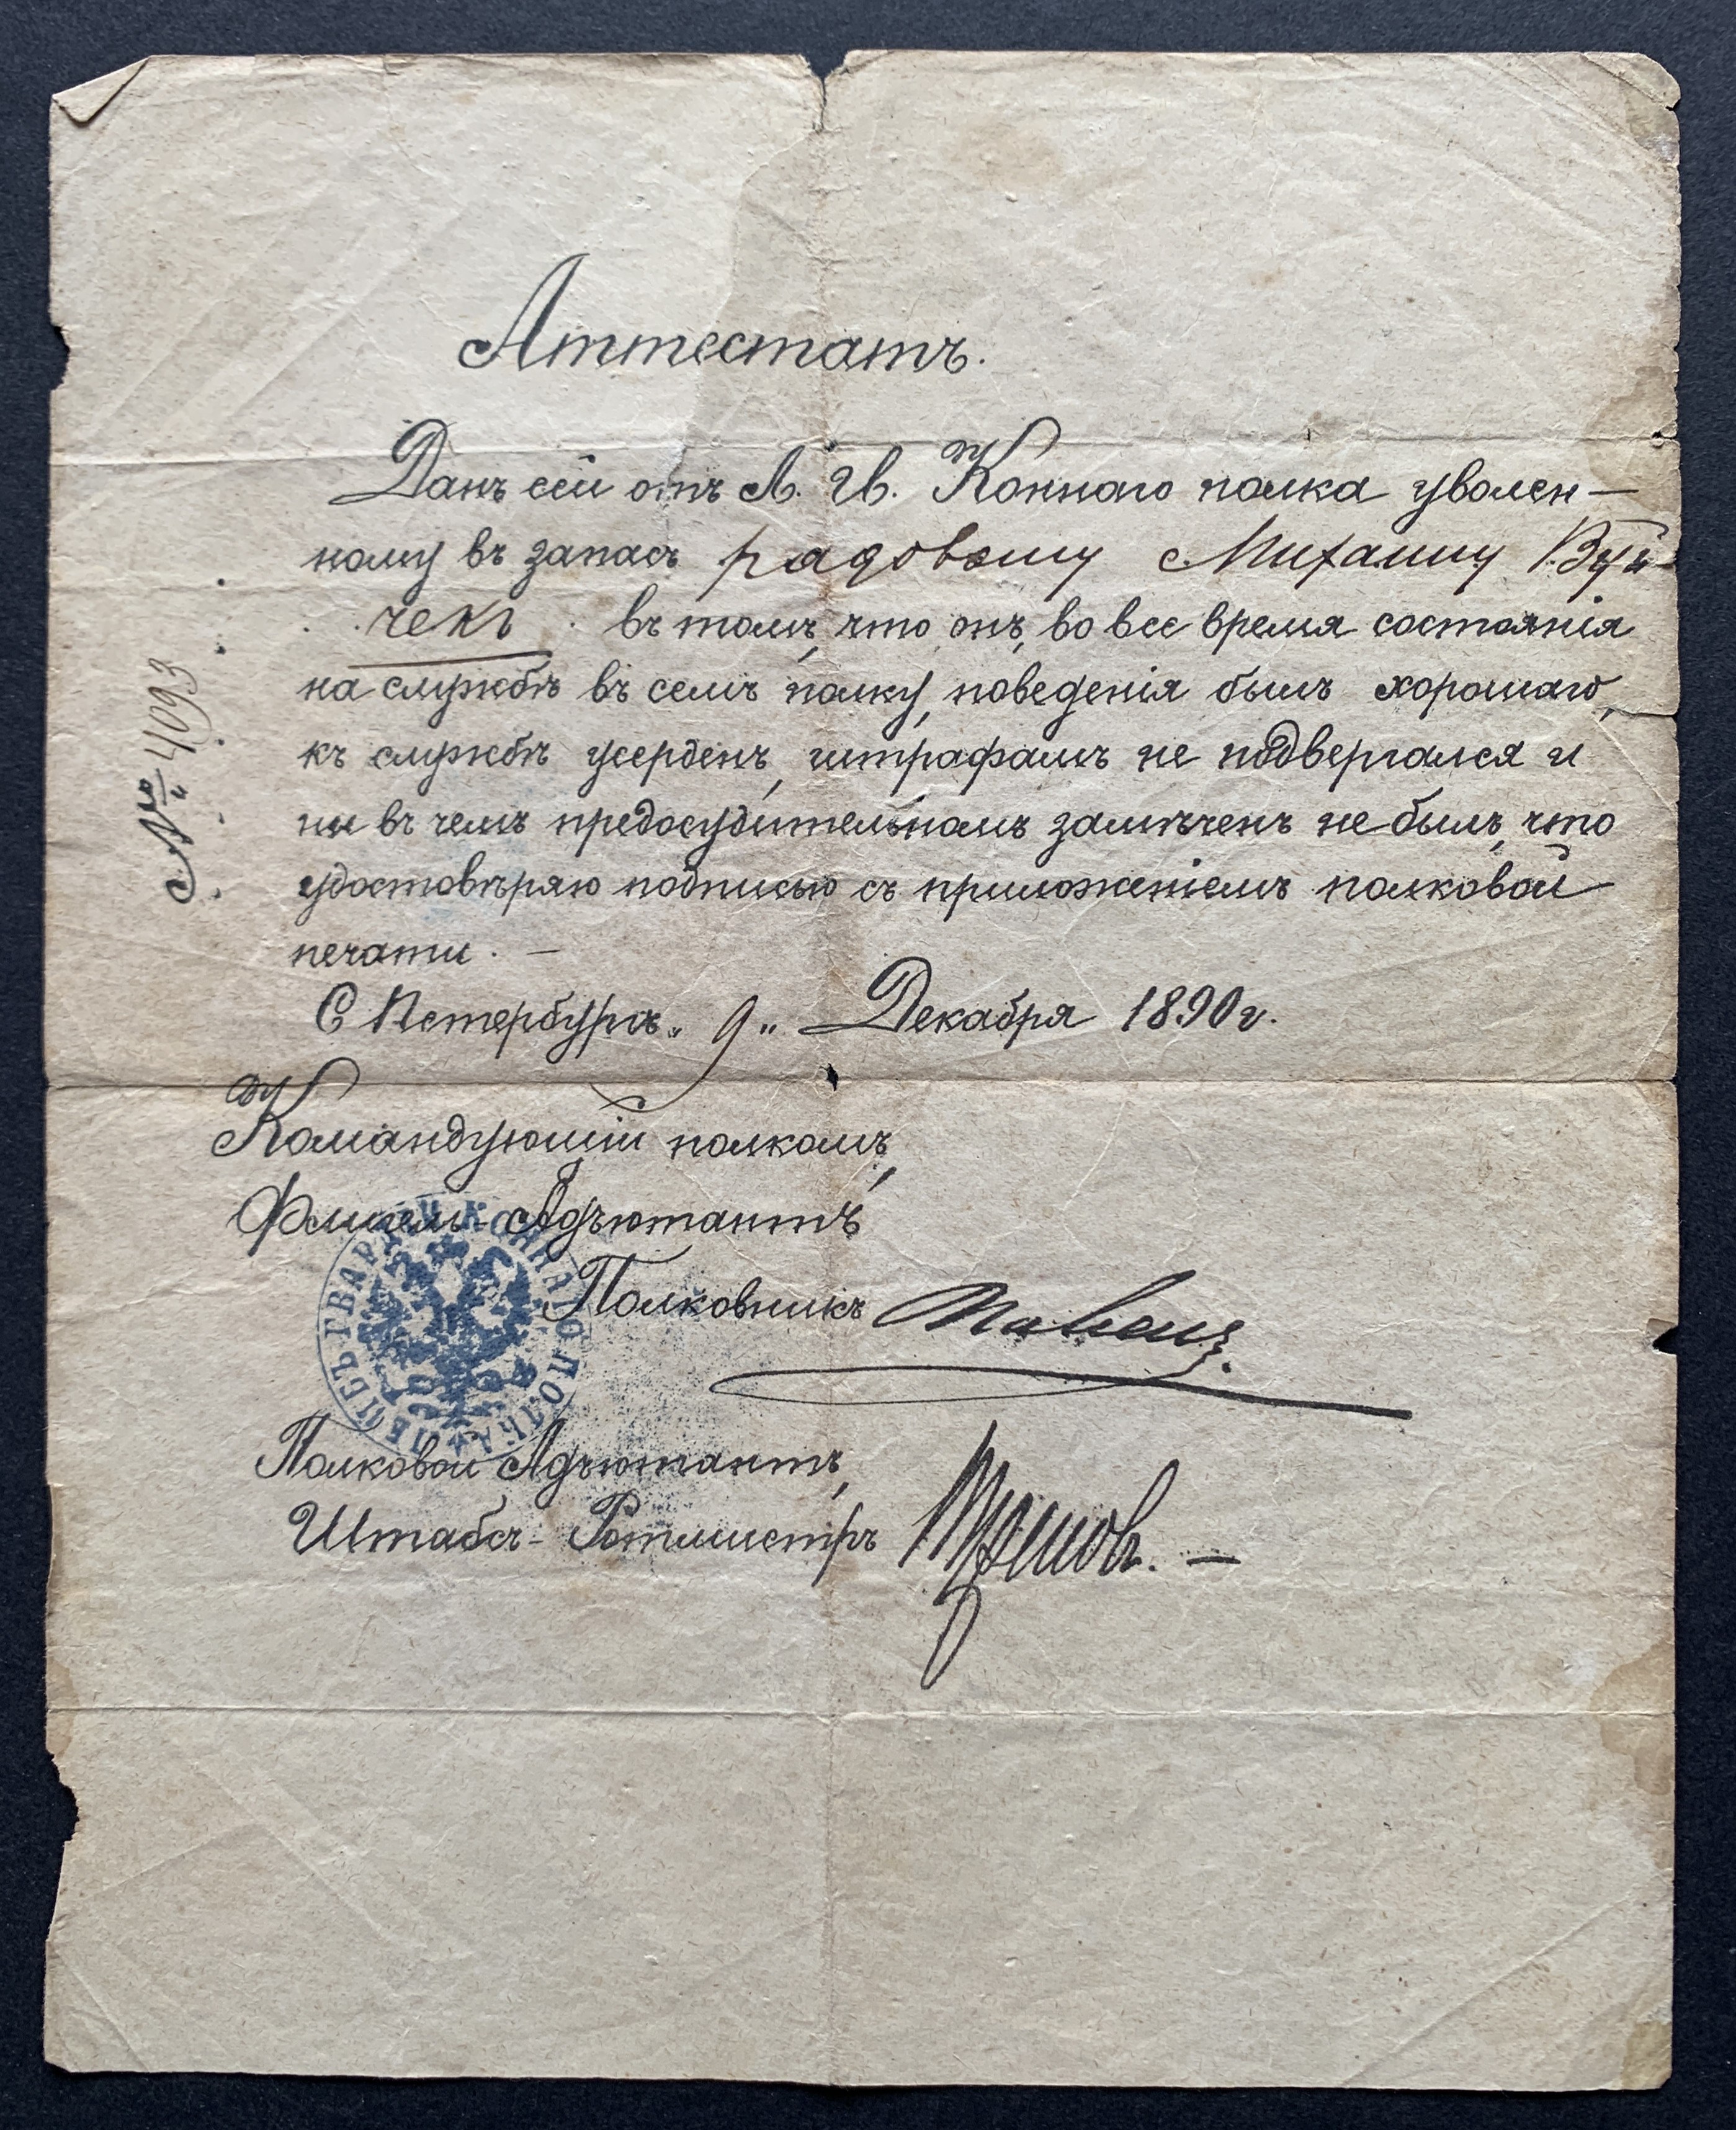 Аттестатъ.
Данъ сей отъ Л. Гв. Коннаго полка уволен-
ному въ запасъ рядовому Михаилу Вуй-
чекъ въ томъ, что онъ, во все время состоянія
на службѣ въ семъ полку, поведенія былъ хорошаго,
къ службѣ усерденъ, штрафамъ не подвергался и
ни въ чемъ предосудительномъ замѣченъ не былъ, что
удостовѣряю подписью съ приложеніемъ полковой
печати. —
С Петербургъ „ 9 „ Декабря 1890 г.
Командующій полкомъ,
Флигель-Адъютантъ
Полковникъ
Полковой Адъютантъ,
Штабсъ-Ротмистръ
№ 4093
ЛЕЙБЪ ГВАРДІИ КОННАГО ПОЛКА